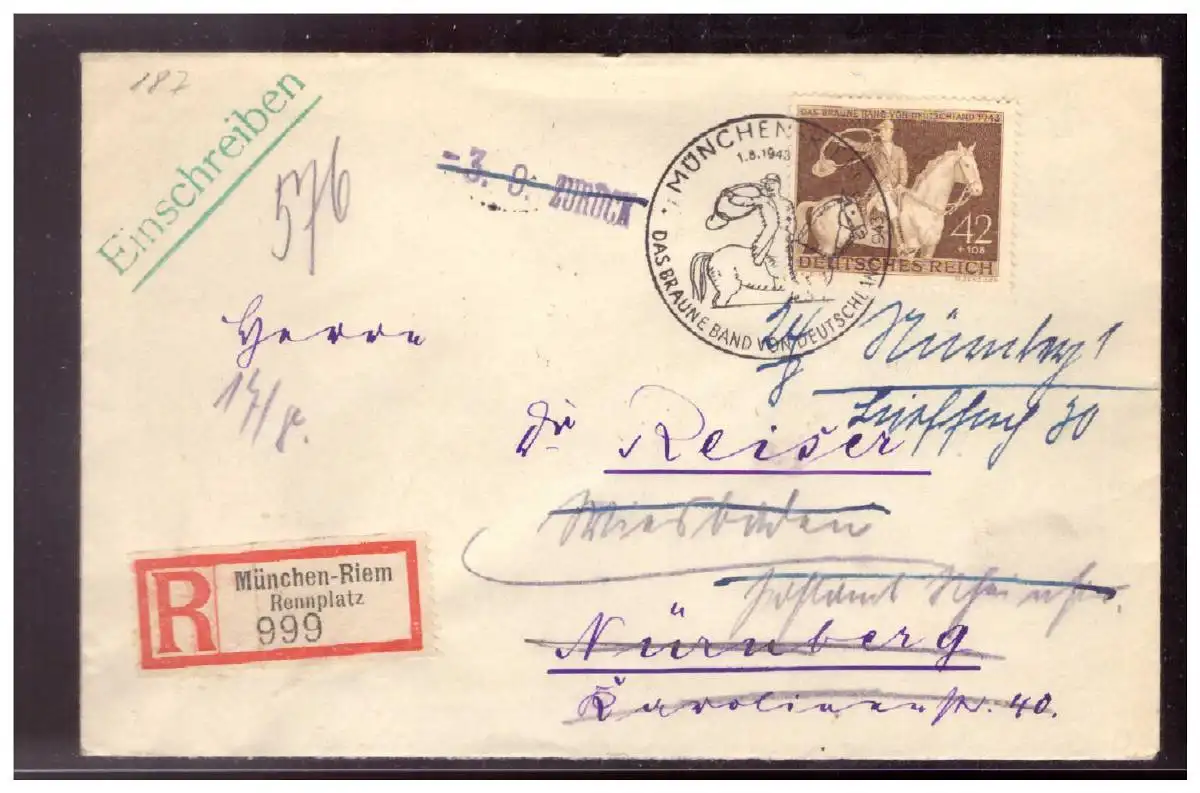 187
Einschreiben
576
- 3. 9. ZURÜCK
MÜNCHEN
1.8.1943
DAS BRAUNE BAND VON DEUTSCHLAND 1943
DAS BRAUNE BAND VON DEUTSCHLAND 1943
42
+ 108
DEUTSCHES REICH
Herrn
17/8.
Nürnberg 1
30
Reiser
Wiesbaden
Postamt
R
München-Riem
Rennplatz
999
Nürnberg
Karolinenstr. 40.